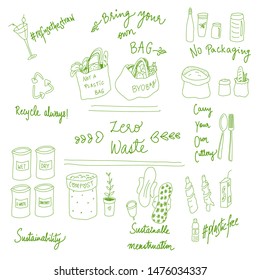 #refusethestraw
Bring your
own
BAG
No Packaging
NOT A
PLASTIC
BAG
BYOBAG
Recycle always!
Zero
Waste
Carry
Your
Own
Cutlery
WET
DRY
COMPOST
Sustainability
Sustainable
menstruation
#plasticfree
shutterstock.com · 1476034337